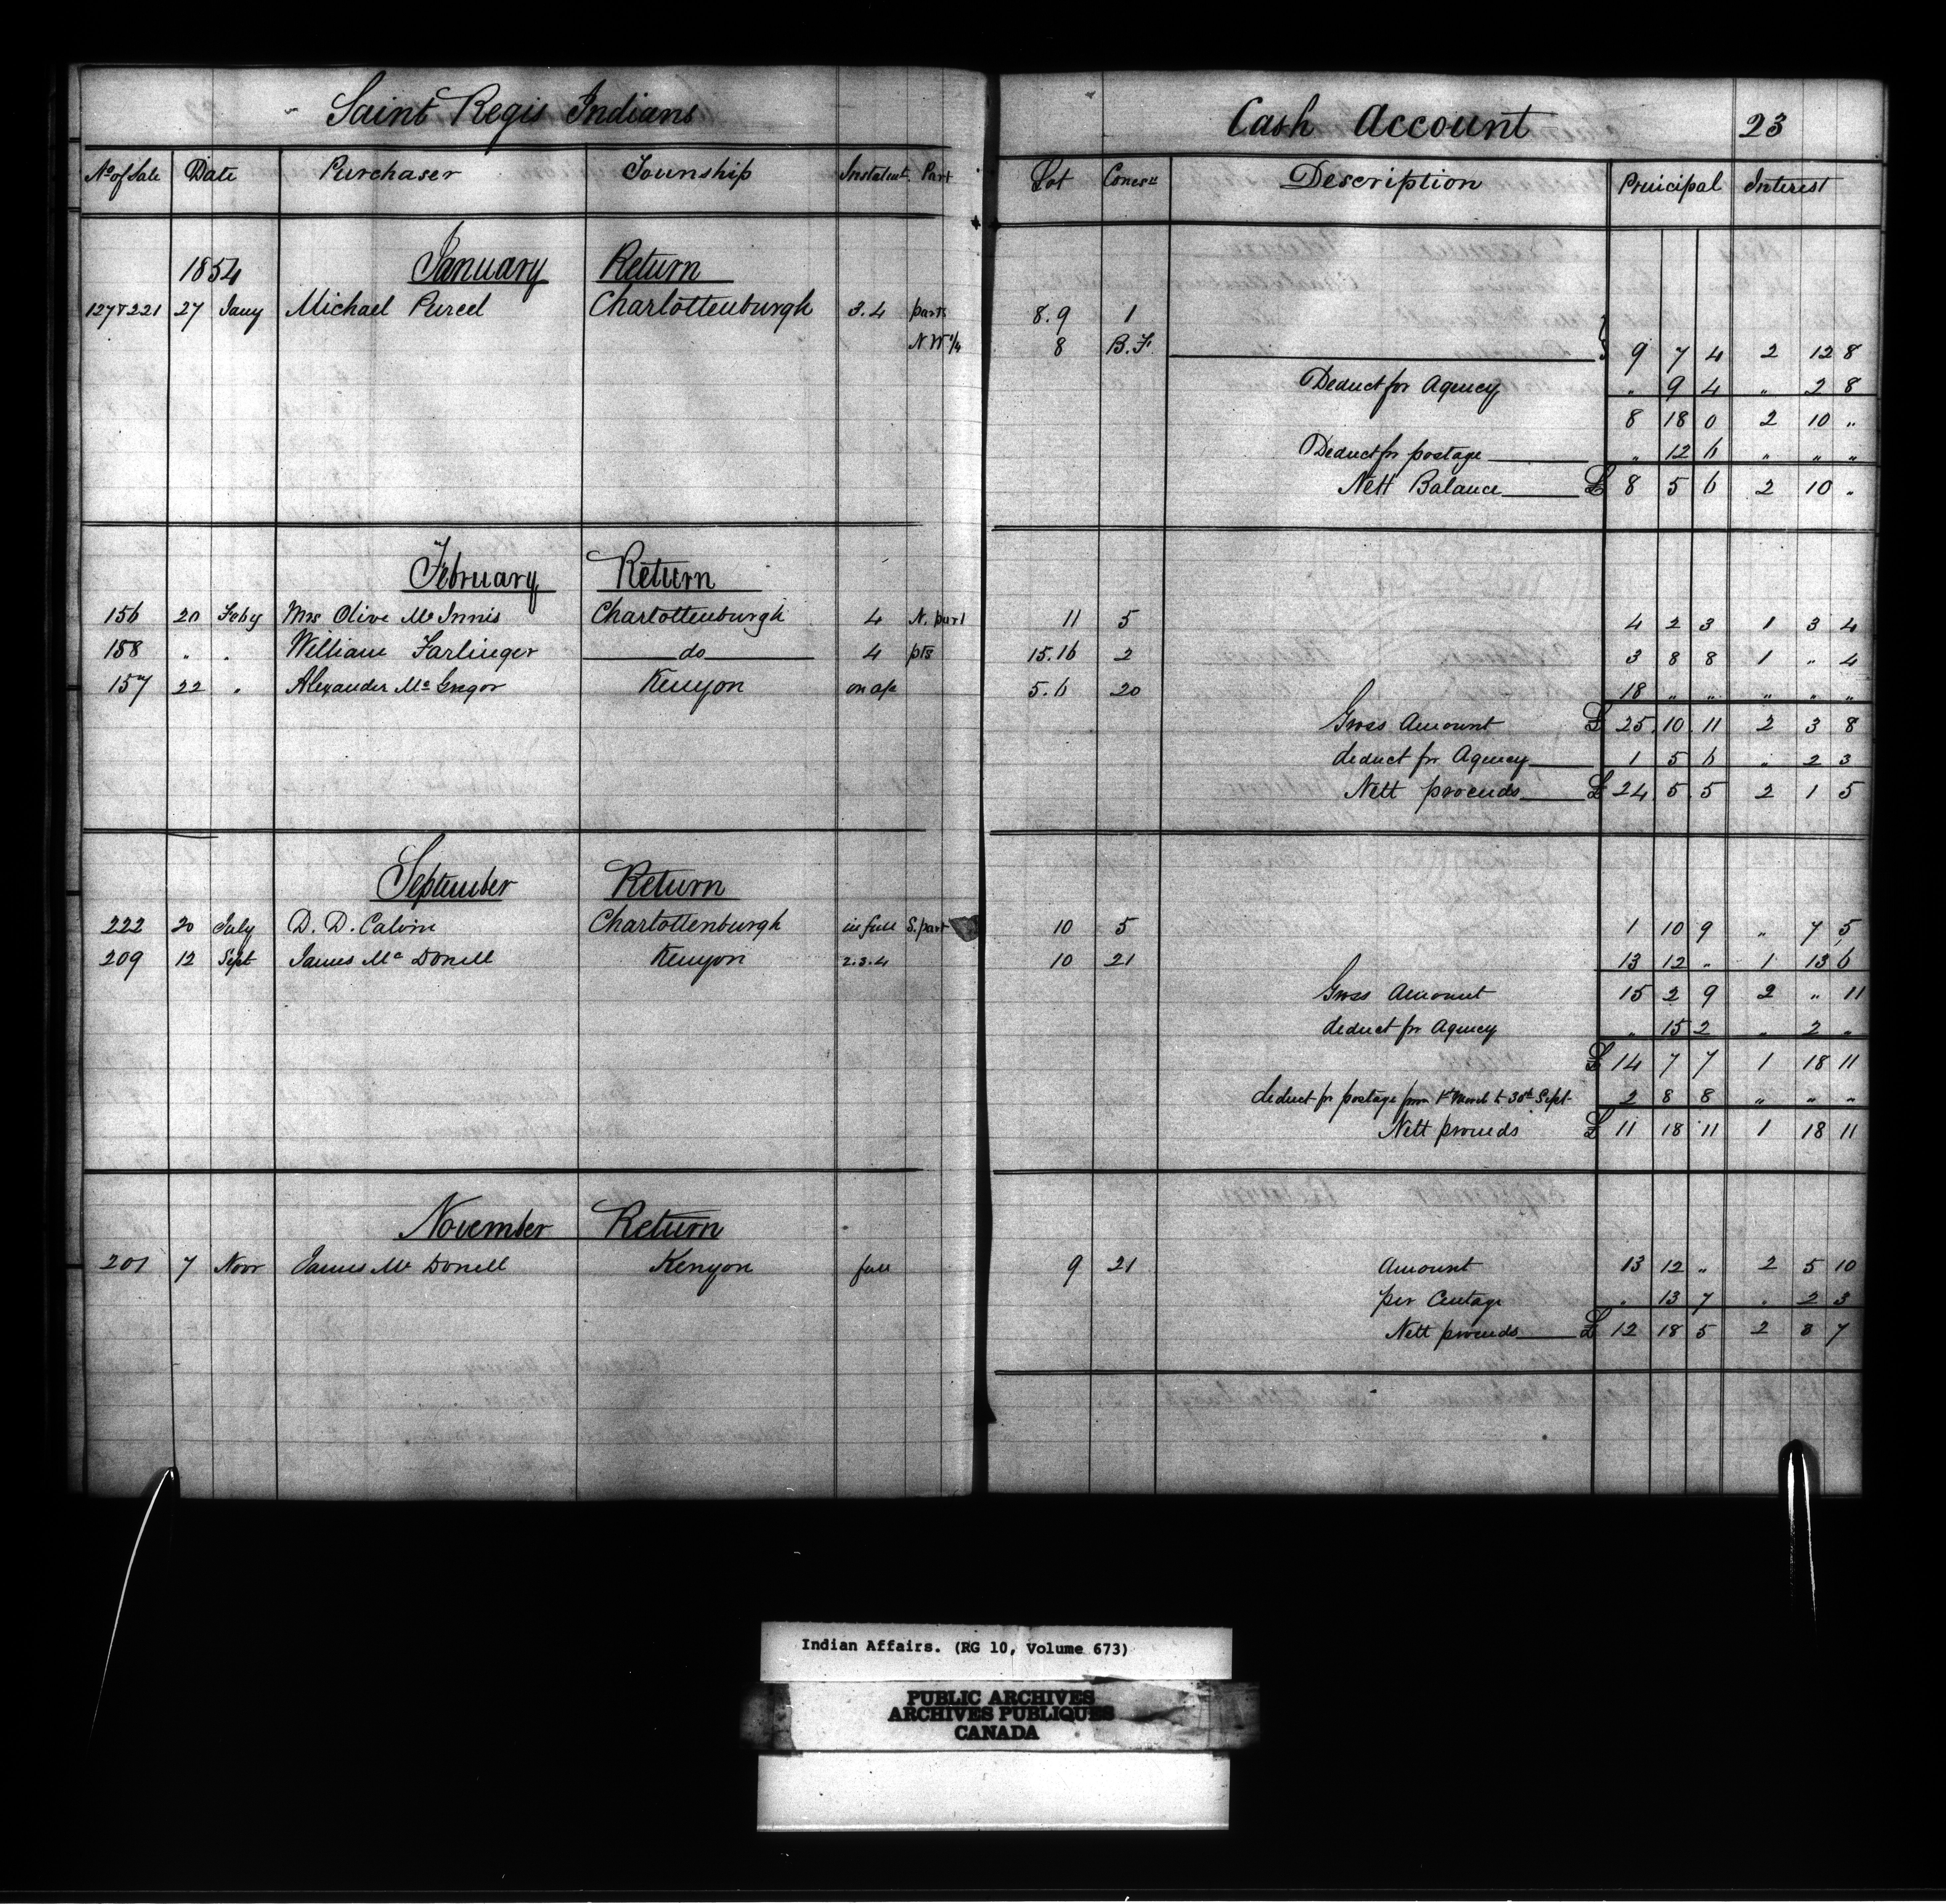 Saint Regis Indians Cash Account 23
No of Sale Date Purchaser Township Instalmt. Part Lot Concesn Description Principal Interest
1854 January Return
127 & 221 27 Jany Michael Purcel Charlottenburgh 3.4 parts 8.9 1
N W 1/4 8 B.F. 9 7 4 2 12 8
Deduct for Agency " 9 4 " 2 8
8 18 0 2 10 "
Deduct for postage " 12 6 " " "
Nett Balance £ 8 5 6 2 10 "
February Return
156 20 Feby Mrs Olive McInnis Charlottenburgh 4 N. part 11 5 4 2 3 1 3 4
158 " " William Farlinger do 4 pts 15.16 2 3 8 8 1 " 4
157 22 " Alexander McGregor Kenyon on a/c 5.6 20 18 " " " " "
Gross Amount £ 25 10 11 2 3 8
deduct for Agency 1 5 6 " 2 3
Nett proceeds £ 24 5 5 2 1 5
September Return
222 20 July D. D. Calvin Charlottenburgh in full S. part 10 5 1 10 9 " 7 5
209 12 Sept James McDonell Kenyon 2.3.4 10 21 13 12 " 1 13 6
Gross Amount 15 2 9 2 " 11
deduct for Agency " 15 2 " 2 "
£ 14 7 7 1 18 11
deduct for postage from 1st March to 30th Sept 2 8 8 " " "
Nett proceeds £ 11 18 11 1 18 11
November Return
201 7 Novr James McDonell Kenyon full 9 21 Amount 13 12 " 2 5 10
per Centage " 13 7 " 2 3
Nett proceeds £ 12 18 5 2 3 7
Indian Affairs. (RG 10, Volume 673)
PUBLIC ARCHIVES
ARCHIVES PUBLIQUES
CANADA